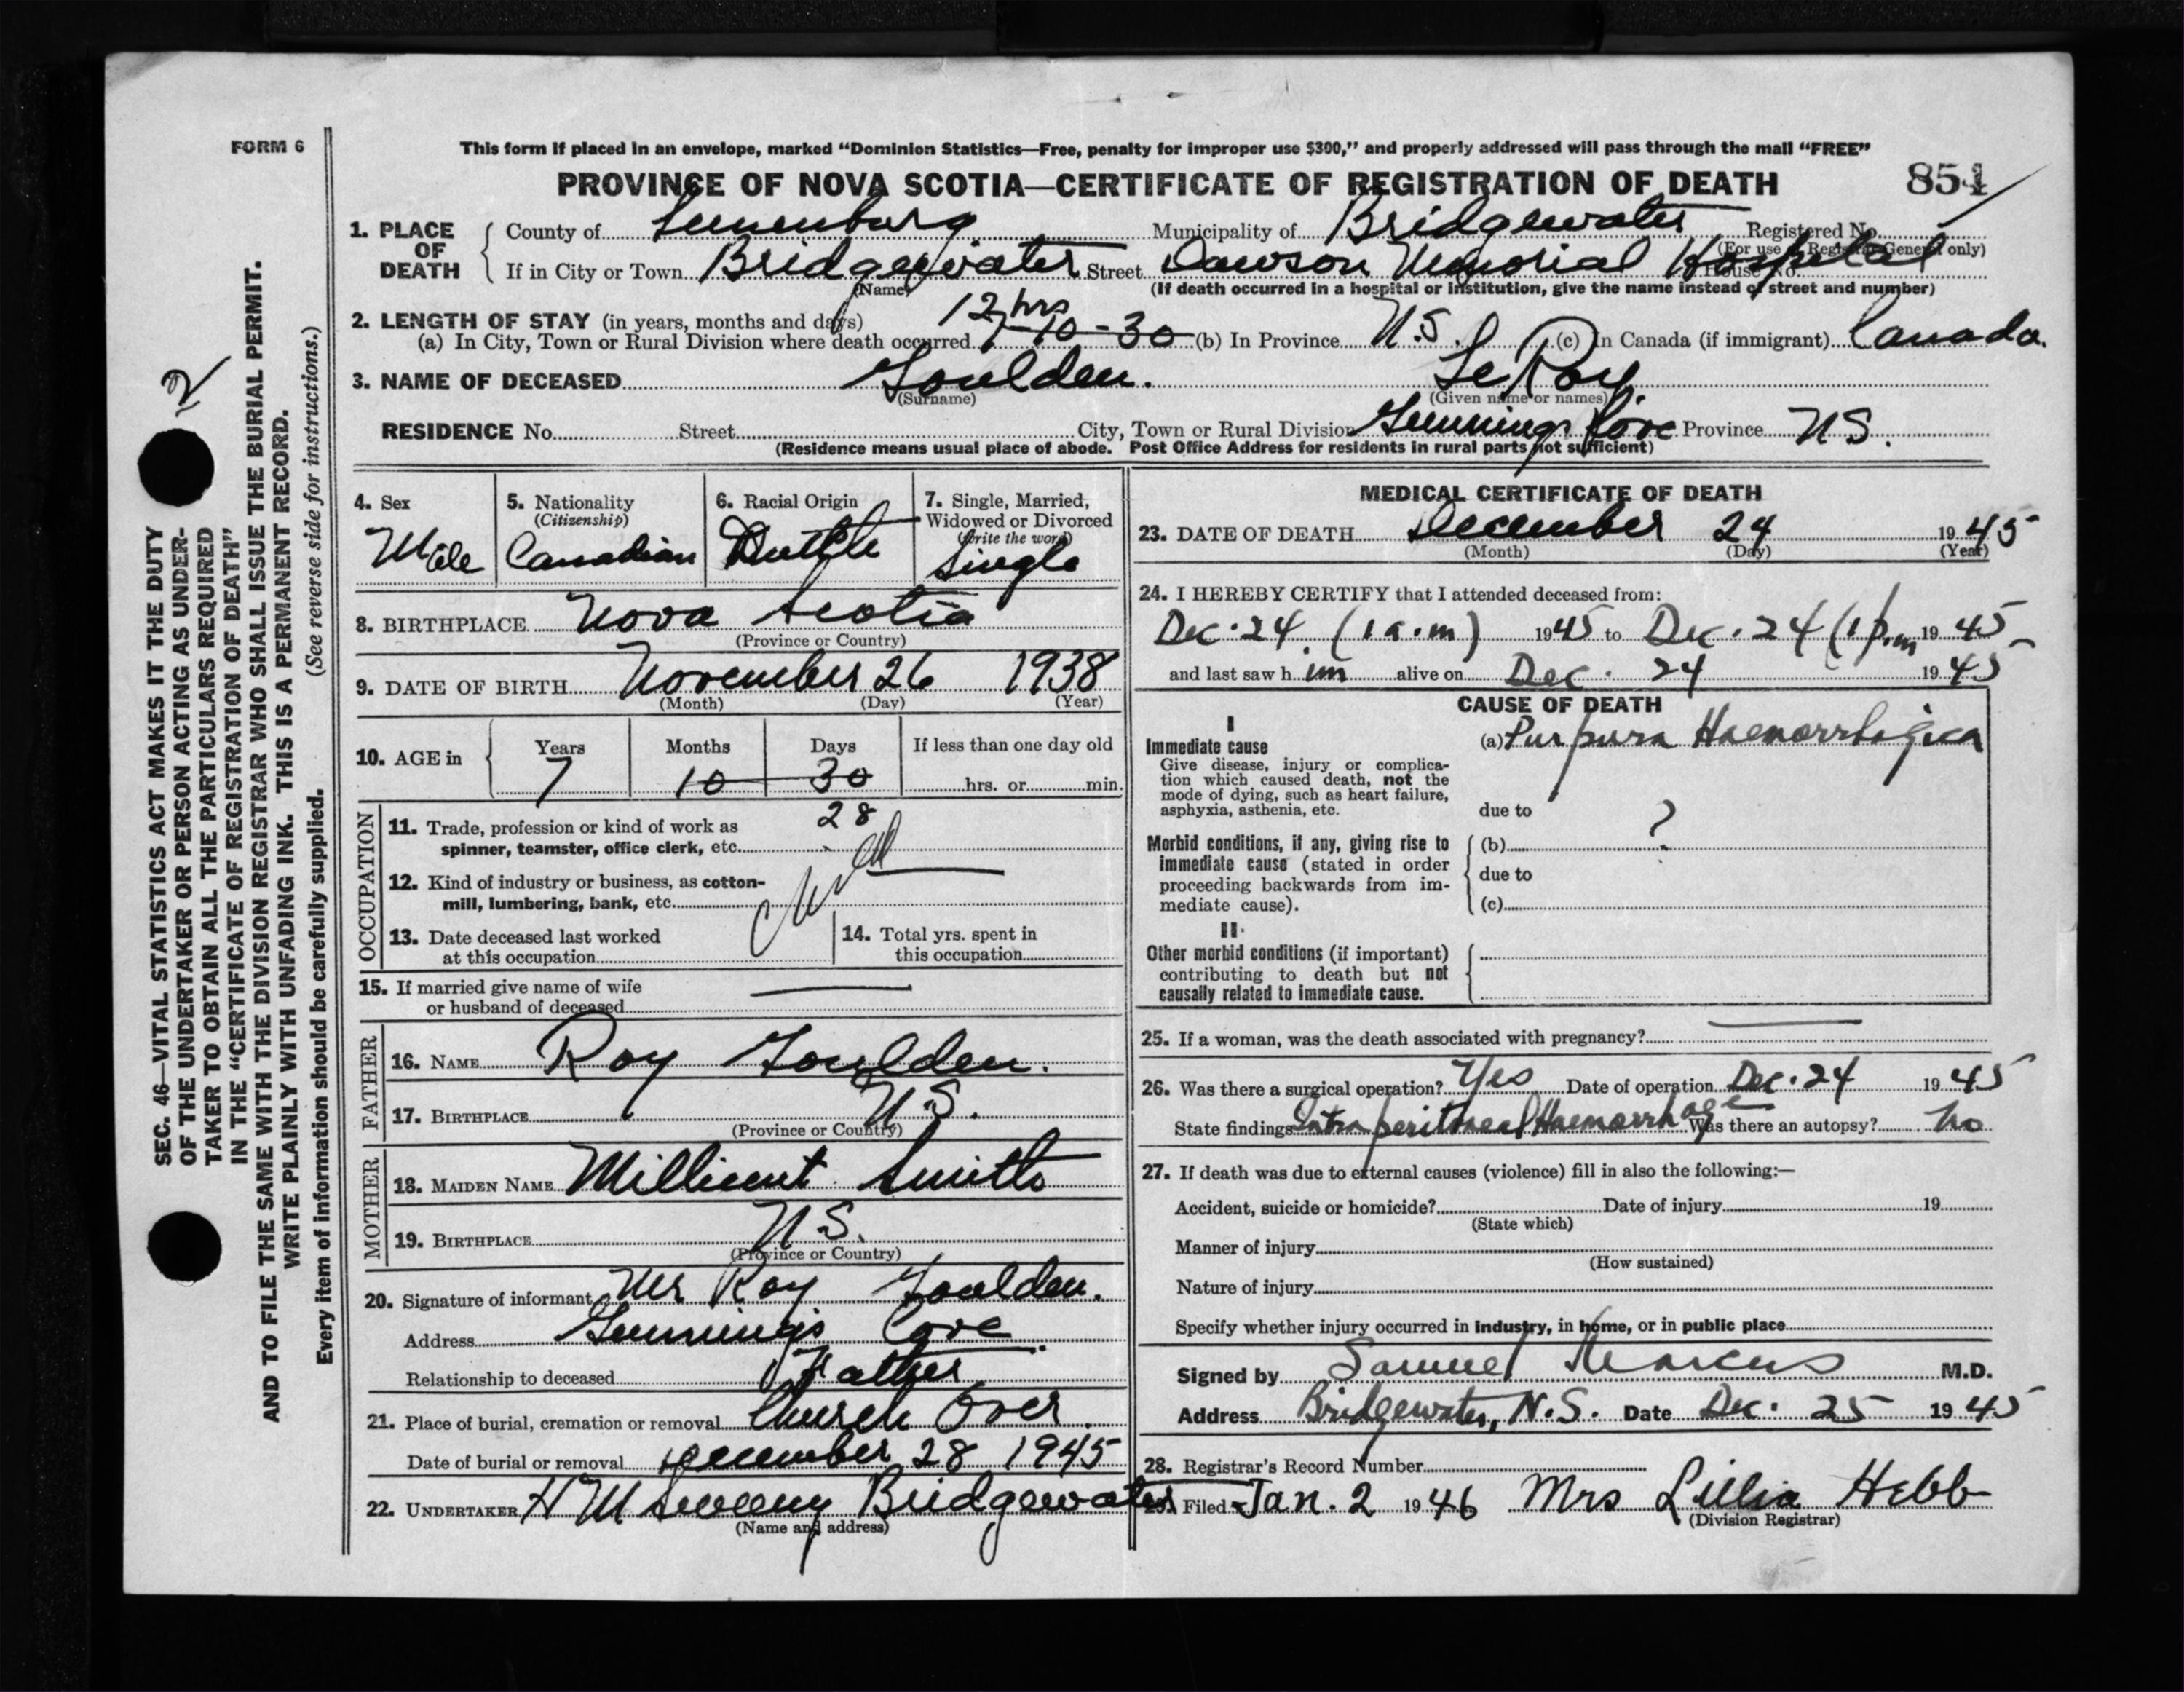 FORM 6
This form if placed in an envelope, marked “Dominion Statistics—Free, penalty for improper use $300,” and properly addressed will pass through the mail “FREE”
PROVINCE OF NOVA SCOTIA—CERTIFICATE OF REGISTRATION OF DEATH 854
1. PLACE OF DEATH
County of Lunenburg Municipality of Bridgewater Registered No.
(For use of Registrar General only)
If in City or Town Bridgewater Street Dawson Memorial Hospital House No.
(Name) (If death occurred in a hospital or institution, give the name instead of street and number)
2. LENGTH OF STAY (in years, months and days) 12 hrs
(a) In City, Town or Rural Division where death occurred 7-10-30 (b) In Province N.S. (c) In Canada (if immigrant) Canada.
3. NAME OF DECEASED Goulden. LeRoy
(Surname) (Given name or names)
RESIDENCE No. Street City, Town or Rural Division Cove Province N.S.
(Residence means usual place of abode. Post Office Address for residents in rural parts not sufficient)
4. Sex Male
5. Nationality (Citizenship) Canadian
6. Racial Origin
7. Single, Married, Widowed or Divorced (write the word) Single
8. BIRTHPLACE Nova Scotia
(Province or Country)
9. DATE OF BIRTH November 26 1938
(Month) (Day) (Year)
10. AGE in Years Months Days If less than one day old
7 10 30 hrs. or min.
28
OCCUPATION
11. Trade, profession or kind of work as
spinner, teamster, office clerk, etc.
12. Kind of industry or business, as cotton-
mill, lumbering, bank, etc.
13. Date deceased last worked
at this occupation
14. Total yrs. spent in
this occupation
15. If married give name of wife
or husband of deceased
FATHER
16. NAME Roy Goulden.
17. BIRTHPLACE N.S.
(Province or Country)
MOTHER
18. MAIDEN NAME Millicent Smith
19. BIRTHPLACE N.S.
(Province or Country)
20. Signature of informant Mr Roy Goulden.
Address Cove
Relationship to deceased Father
21. Place of burial, cremation or removal Church Over.
Date of burial or removal December 28 1945
22. UNDERTAKER H M Sweeny Bridgewater
(Name and address)
MEDICAL CERTIFICATE OF DEATH
23. DATE OF DEATH December 24 1945
(Month) (Day) (Year)
24. I HEREBY CERTIFY that I attended deceased from:
Dec. 24 (1 a.m) 1945 to Dec. 24 (1 p.m 1945
and last saw h im alive on Dec. 24 1945
CAUSE OF DEATH
I
Immediate cause (a) Purpura Haemorrhagica
Give disease, injury or complica-
tion which caused death, not the
mode of dying, such as heart failure,
asphyxia, asthenia, etc. due to ?
Morbid conditions, if any, giving rise to (b)
immediate cause (stated in order
proceeding backwards from im- due to
mediate cause). (c)
II
Other morbid conditions (if important)
contributing to death but not
causally related to immediate cause.
25. If a woman, was the death associated with pregnancy?
26. Was there a surgical operation? Yes Date of operation Dec. 24 1945
State findings Intra peritoneal Haemorrhage Was there an autopsy? No
27. If death was due to external causes (violence) fill in also the following:—
Accident, suicide or homicide? Date of injury 19
(State which)
Manner of injury
(How sustained)
Nature of injury
Specify whether injury occurred in industry, in home, or in public place
Signed by Samuel Marcus M.D.
Address Bridgewater, N.S. Date Dec. 25 1945
28. Registrar's Record Number
29. Filed Jan. 2 1946 Mrs Lillia Hebb
(Division Registrar)
2
SEC. 46—VITAL STATISTICS ACT MAKES IT THE DUTY
OF THE UNDERTAKER OR PERSON ACTING AS UNDER-
TAKER TO OBTAIN ALL THE PARTICULARS REQUIRED
IN THE “CERTIFICATE OF REGISTRATION OF DEATH”
AND TO FILE THE SAME WITH THE DIVISION REGISTRAR WHO SHALL ISSUE THE BURIAL PERMIT.
WRITE PLAINLY WITH UNFADING INK. THIS IS A PERMANENT RECORD.
Every item of information should be carefully supplied. (See reverse side for instructions.)